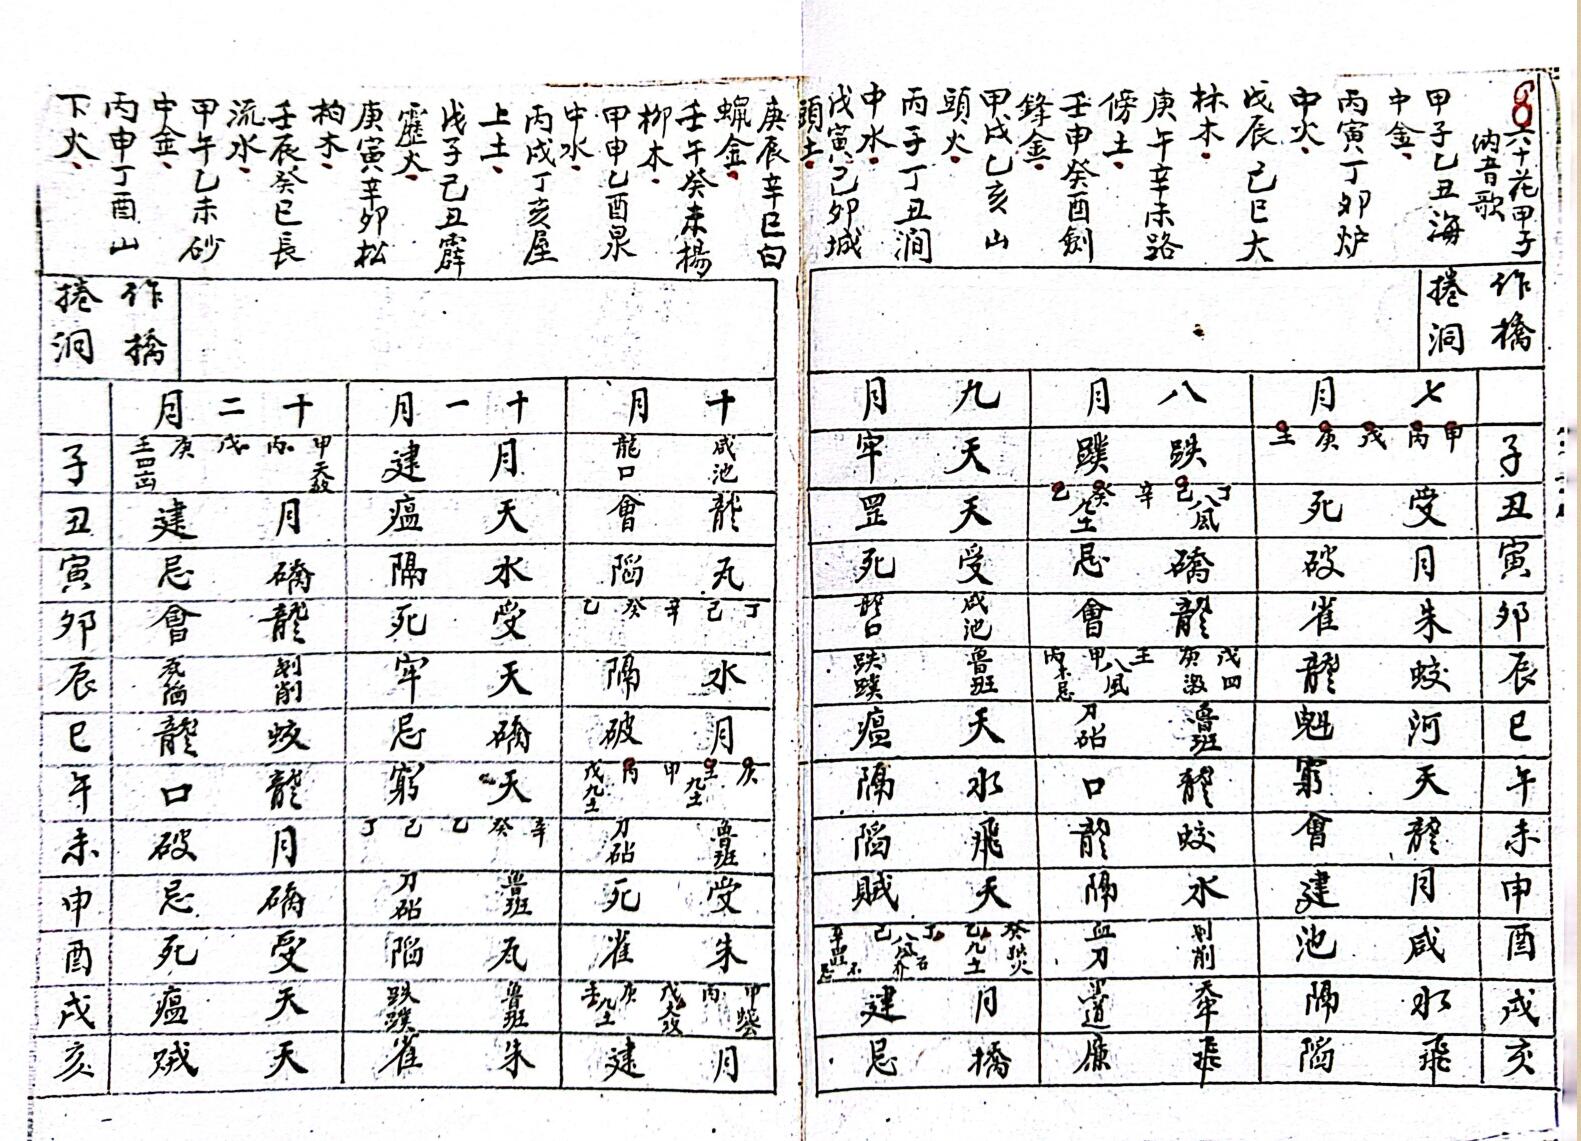 8
六十花甲子
納音歌
甲子乙丑海
中金
丙寅丁卯炉
中火
戊辰己巳大
林木
庚午辛未路
傍土
壬申癸酉劍
鋒金
甲戌乙亥山
頭火
丙子丁丑澗
中水
戊寅己卯城
頭土
庚辰辛巳白
蝋金
壬午癸未楊
柳木
甲申乙酉泉
中水
丙戌丁亥屋
上土
戊子己丑霹
靂火
庚寅辛卯松
柏木
壬辰癸巳長
流水
甲午乙未砂
中金
丙申丁酉山
下火
作橋
捲洞
七月
甲丙戊庚壬
受死
月破
朱雀
蛟龍
河魁
天窮
龍會
月建
咸池
水隔
飛陷
八月
跌蹼
丁己辛癸乙
八風
九土
礄忌
龍會
戊庚壬甲丙
八風
魯班
刀砧
龍口
蛟龍
水隔
刮削
血刀
天牢
黑道
飛廉
九月
天牢
天罡
受死
咸池
龍口
魯班
跌蹼
天瘟
水隔
飛陷
天賊
癸乙丁己辛
九土
月建
橋忌
子
丑
寅
卯
辰
巳
午
未
申
酉
戌
亥
作橋
捲洞
十月
咸池
龍口
龍會
瓦陷
丁己辛癸乙
水隔
月破
庚壬甲丙戊
九土
九土
魯班
刀砧
受死
朱雀
甲丙戊庚壬
九土
月建
十一月
月建
天瘟
水隔
受死
天牢
礄忌
天窮
辛癸乙己丁
魯班
刀砧
瓦陷
魯班
跌蹼
朱雀
十二月
甲丙戊庚壬
月建
礄忌
龍會
刮削
瓦陷
蛟龍
龍口
月破
礄忌
受死
天瘟
天賊
子
丑
寅
卯
辰
巳
午
未
申
酉
戌
亥